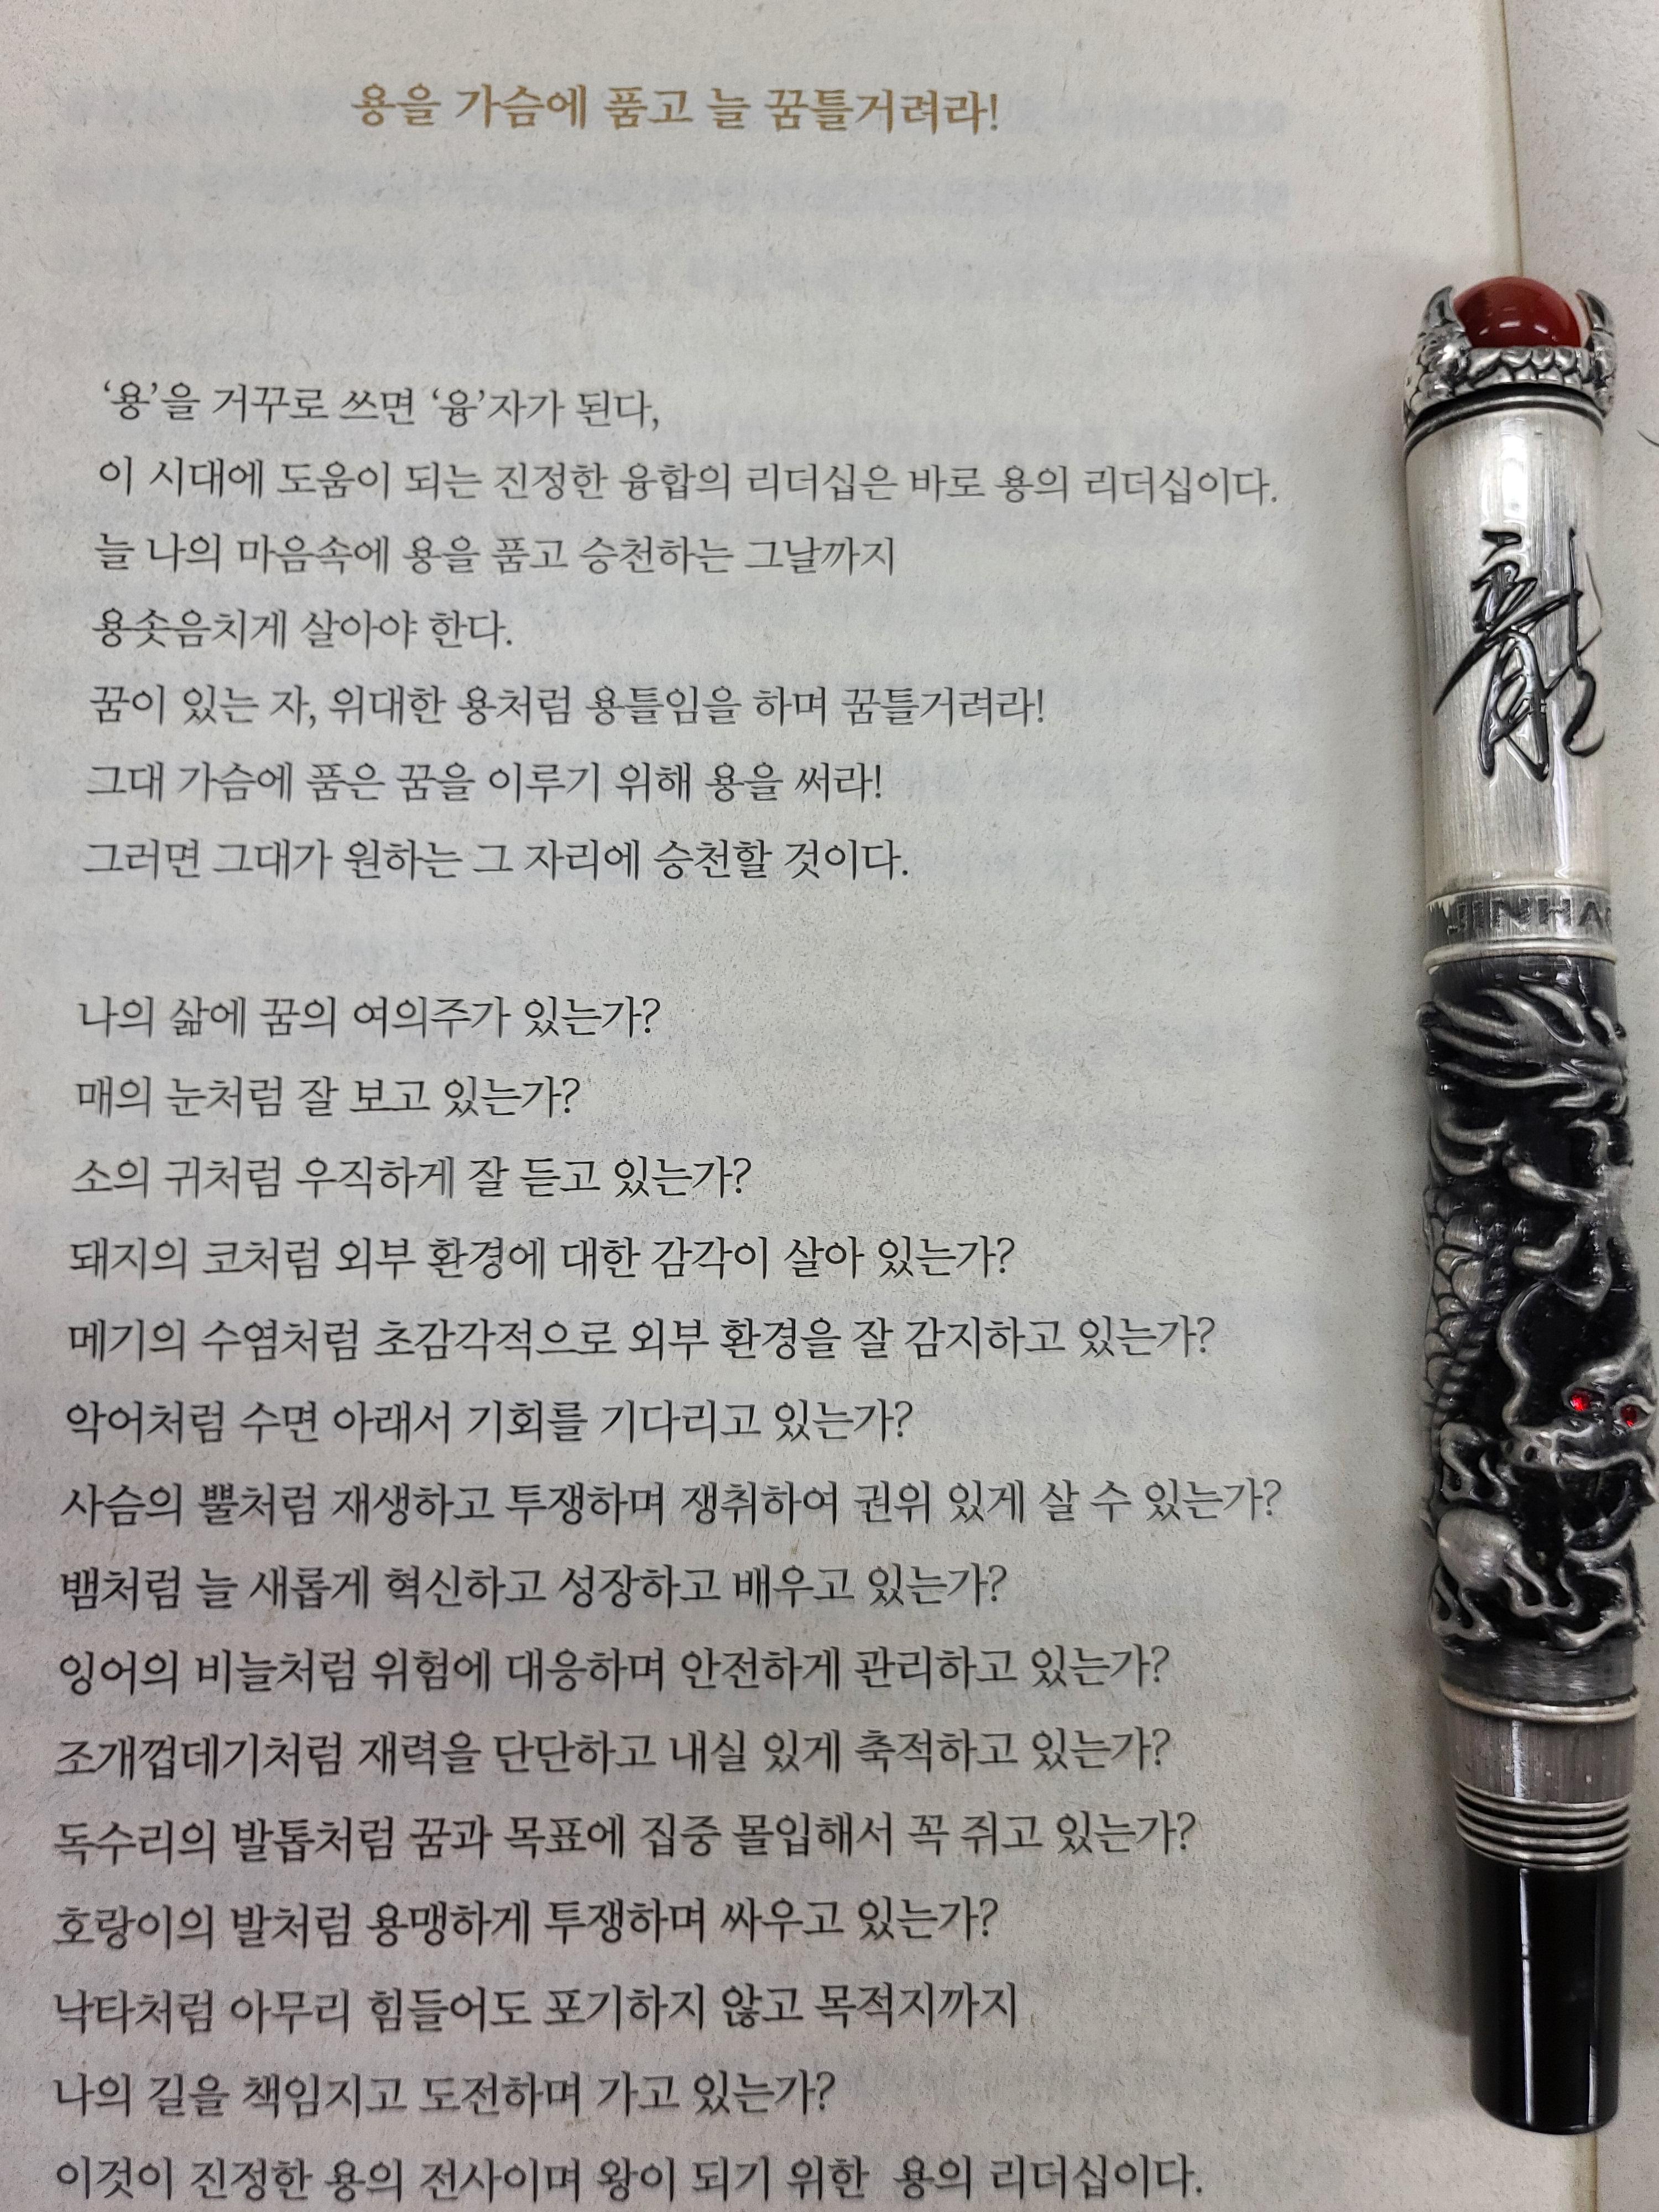 용을 가슴에 품고 늘 꿈틀거려라!
‘용’을 거꾸로 쓰면 ‘융’자가 된다,
이 시대에 도움이 되는 진정한 융합의 리더십은 바로 용의 리더십이다.
늘 나의 마음속에 용을 품고 승천하는 그날까지
용솟음치게 살아야 한다.
꿈이 있는 자, 위대한 용처럼 용틀임을 하며 꿈틀거려라!
그대 가슴에 품은 꿈을 이루기 위해 용을 써라!
그러면 그대가 원하는 그 자리에 승천할 것이다.
나의 삶에 꿈의 여의주가 있는가?
매의 눈처럼 잘 보고 있는가?
소의 귀처럼 우직하게 잘 듣고 있는가?
돼지의 코처럼 외부 환경에 대한 감각이 살아 있는가?
메기의 수염처럼 초감각적으로 외부 환경을 잘 감지하고 있는가?
악어처럼 수면 아래서 기회를 기다리고 있는가?
사슴의 뿔처럼 재생하고 투쟁하며 쟁취하여 권위 있게 살 수 있는가?
뱀처럼 늘 새롭게 혁신하고 성장하고 배우고 있는가?
잉어의 비늘처럼 위험에 대응하며 안전하게 관리하고 있는가?
조개껍데기처럼 재력을 단단하고 내실 있게 축적하고 있는가?
독수리의 발톱처럼 꿈과 목표에 집중 몰입해서 꼭 쥐고 있는가?
호랑이의 발처럼 용맹하게 투쟁하며 싸우고 있는가?
낙타처럼 아무리 힘들어도 포기하지 않고 목적지까지
나의 길을 책임지고 도전하며 가고 있는가?
이것이 진정한 용의 전사이며 왕이 되기 위한 용의 리더십이다.
龍
JINHA